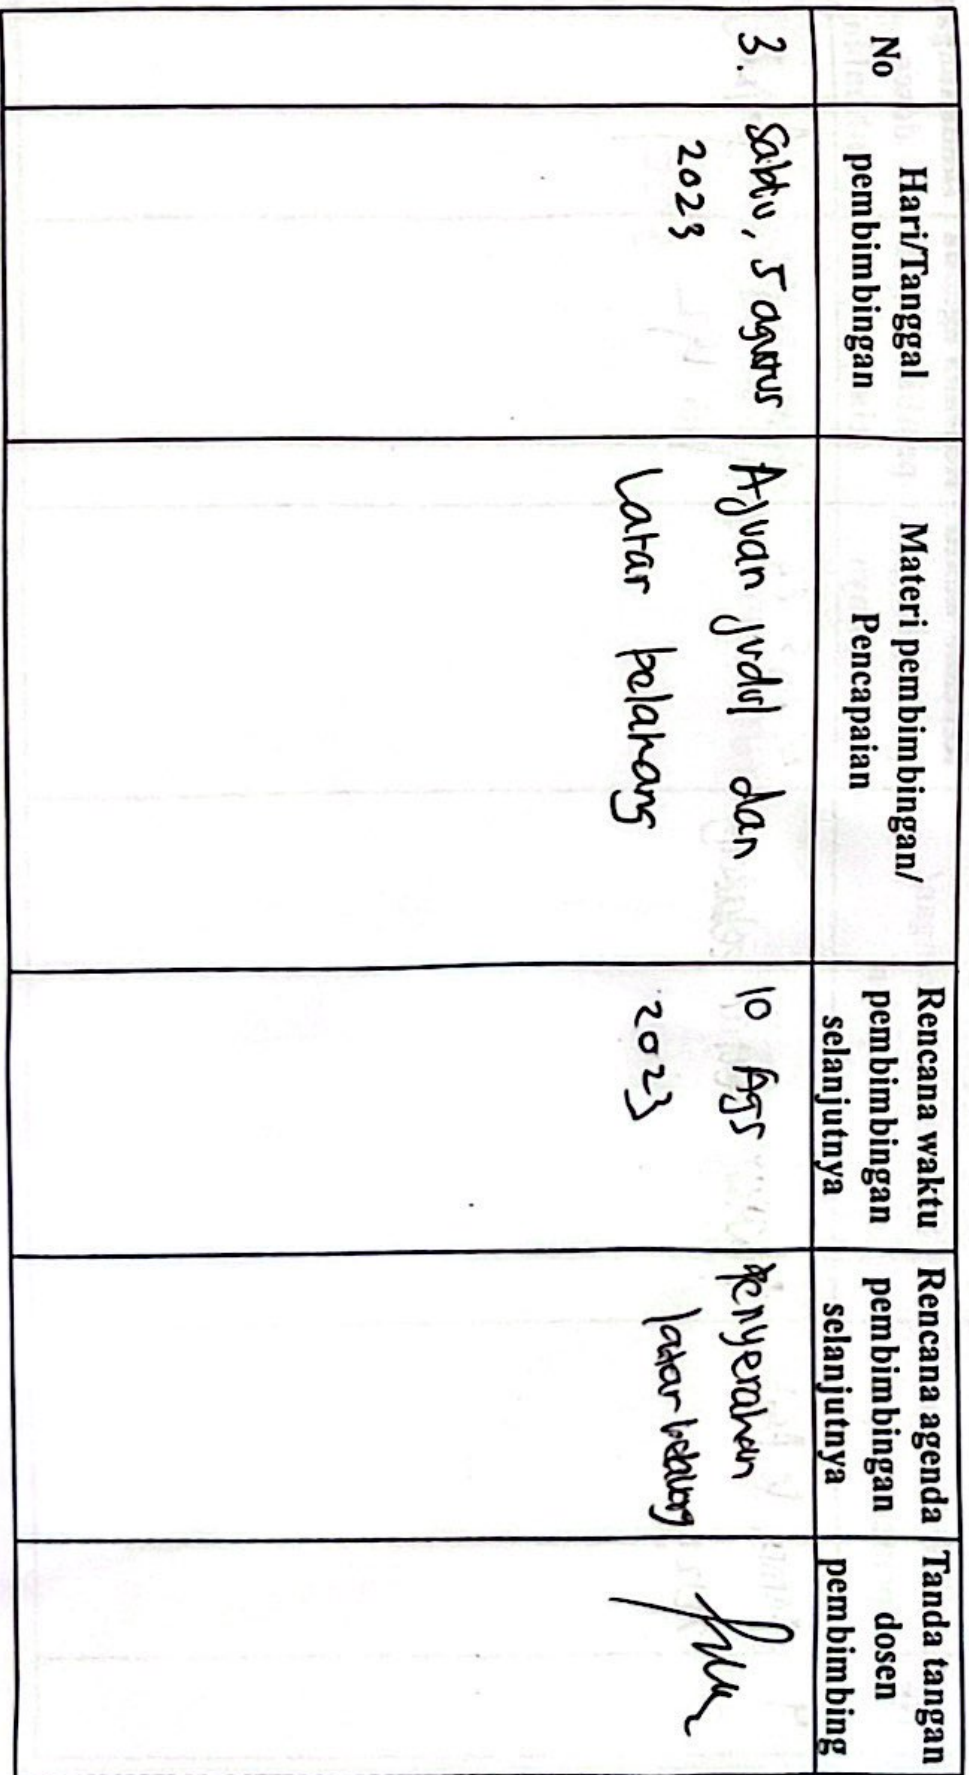 No
Hari/Tanggal
pembimbingan
Materi pembimbingan/
Pencapaian
Rencana waktu
pembimbingan
selanjutnya
Rencana agenda
pembimbingan
selanjutnya
Tanda tangan
dosen
pembimbing
3.
Sabtu, 5 agustus
2023
Ajuan judul dan
Latar belakang
10 Ags
2023
Penyerahan
latar belakang